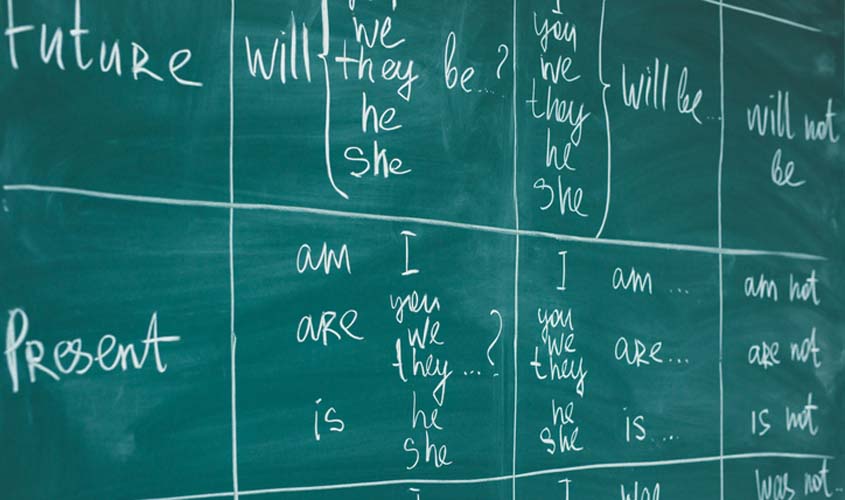 Future
will
you
we
they be...?
he
she
I
you
we
they
he
she
will be...
will not
be
Present
am I
are you
we
they...?
is he
she
I am ...
you
we are...
they
he is ...
she
am not
are not
is not
I
I was
was not..